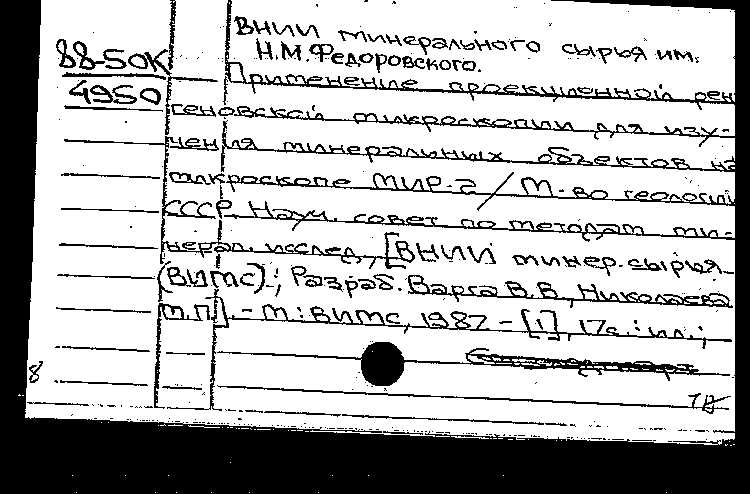 ВНИИ минерального сырья им.
Н.М. Федоровского.
88-50К
4950
Применение проекционной рен
геновской микроскопии для изу-
чения минеральных объектов на
микроскопе МИР-2 / М-во геологии
СССР. Науч. совет по методам ми-
нерал. исслед., [ВНИИ минер. сырья
(ВИМС); Разраб. Варга В.В., Николаева
Т.П]. - М: ВИМС, 1987 - [1], 17с.: ил.;
8